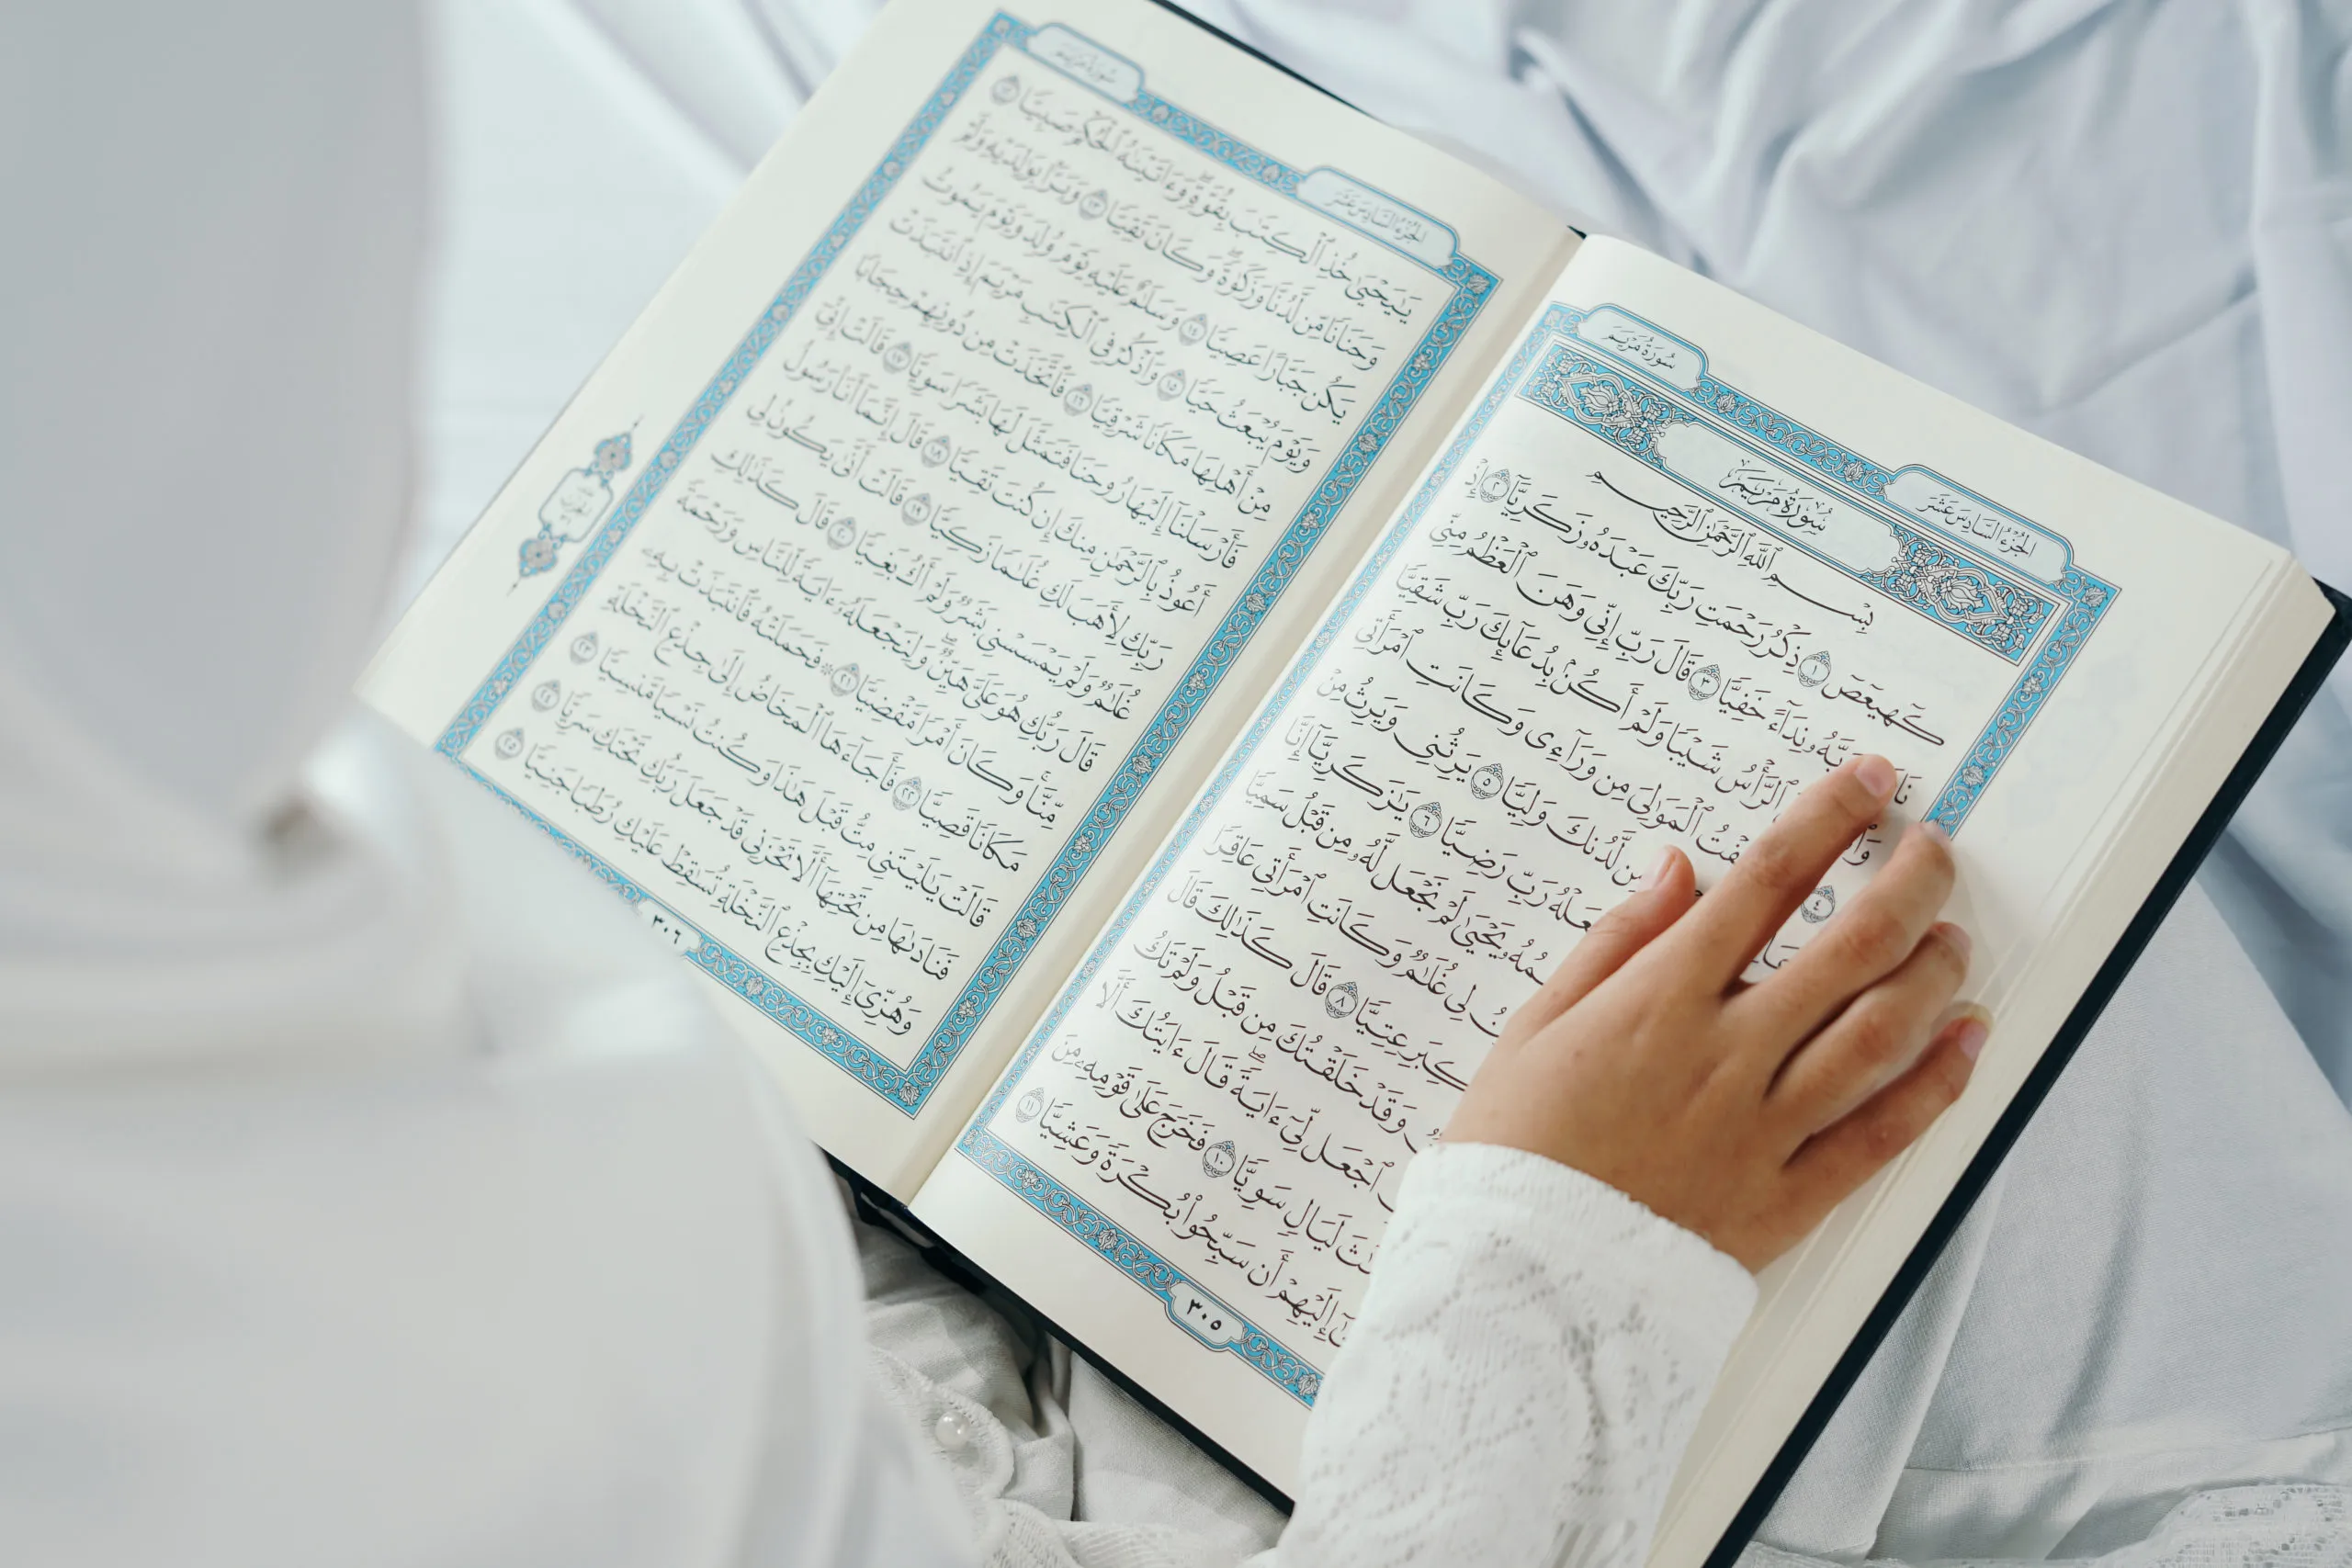 سُورَةُ مَرْيَمَ
الجُزْءُ السَّادِسَ عَشَرَ
سُورَةُ مَرْيَمَ
بِسْمِ ٱللَّهِ ٱلرَّحْمَٰنِ ٱلرَّحِيمِ
كٓهيعٓصٓ ١ ذِكْرُ رَحْمَتِ رَبِّكَ عَبْدَهُۥ زَكَرِيَّآ ٢ إِذْ
رَبَّهُۥ نِدَآءً خَفِيًّا ٣ قَالَ رَبِّ إِنِّى وَهَنَ ٱلْعَظْمُ مِنِّى
ٱلرَّأْسُ شَيْبًا وَلَمْ أَكُنۢ بِدُعَآئِكَ رَبِّ شَقِيًّا
٤ ٱلْمَوَٰلِىَ مِن وَرَآءِى وَكَانَتِ ٱمْرَأَتِى
مِن لَّدُنكَ وَلِيًّا ٥ يَرِثُنِى وَيَرِثُ مِنْ
رَبِّ رَضِيًّا ٦ يَٰزَكَرِيَّآ إِنَّا
يَحْيَىٰ لَمْ نَجْعَل لَّهُۥ مِن قَبْلُ سَمِيًّا
لِى غُلَٰمٌ وَكَانَتِ ٱمْرَأَتِى عَاقِرًا
ٱلْكِبَرِ عِتِيًّا ٨ قَالَ كَذَٰلِكَ قَالَ
وَقَدْ خَلَقْتُكَ مِن قَبْلُ وَلَمْ تَكُ
ٱجْعَل لِّىٓ ءَايَةً ۚ قَالَ ءَايَتُكَ أَلَّا
لَيَالٍ سَوِيًّا ١٠ فَخَرَجَ عَلَىٰ قَوْمِهِۦ مِنَ
إِلَيْهِمْ أَن سَبِّحُوا۟ بُكْرَةً وَعَشِيًّا ١١
٣٠٥
سُورَةُ مَرْيَمَ
الجُزْءُ السَّادِسَ عَشَرَ
يَٰيَحْيَىٰ خُذِ ٱلْكِتَٰبَ بِقُوَّةٍ ۖ وَءَاتَيْنَٰهُ ٱلْحُكْمَ صَبِيًّا ١٢
وَحَنَانًا مِّن لَّدُنَّا وَزَكَوٰةً ۖ وَكَانَ تَقِيًّا ١٣ وَبَرًّۢا بِوَٰلِدَيْهِ وَلَمْ
يَكُن جَبَّارًا عَصِيًّا ١٤ وَسَلَٰمٌ عَلَيْهِ يَوْمَ وُلِدَ وَيَوْمَ يَمُوتُ
وَيَوْمَ يُبْعَثُ حَيًّا ١٥ وَٱذْكُرْ فِى ٱلْكِتَٰبِ مَرْيَمَ إِذِ ٱنتَبَذَتْ
مِنْ أَهْلِهَا مَكَانًا شَرْقِيًّا ١٦ فَٱتَّخَذَتْ مِن دُونِهِمْ حِجَابًا
فَأَرْسَلْنَآ إِلَيْهَا رُوحَنَا فَتَمَثَّلَ لَهَا بَشَرًا سَوِيًّا ١٧ قَالَتْ إِنِّىٓ
أَعُوذُ بِٱلرَّحْمَٰنِ مِنكَ إِن كُنتَ تَقِيًّا ١٨ قَالَ إِنَّمَآ أَنَا۠ رَسُولُ
رَبِّكِ لِأَهَبَ لَكِ غُلَٰمًا زَكِيًّا ١٩ قَالَتْ أَنَّىٰ يَكُونُ لِى
غُلَٰمٌ وَلَمْ يَمْسَسْنِى بَشَرٌ وَلَمْ أَكُ بَغِيًّا ٢٠ قَالَ كَذَٰلِكِ
قَالَ رَبُّكِ هُوَ عَلَىَّ هَيِّنٌ ۖ وَلِنَجْعَلَهُۥٓ ءَايَةً لِّلنَّاسِ وَرَحْمَةً
مِّنَّا ۚ وَكَانَ أَمْرًا مَّقْضِيًّا ٢١ ۞ فَحَمَلَتْهُ فَٱنتَبَذَتْ بِهِۦ
مَكَانًا قَصِيًّا ٢٢ فَأَجَآءَهَا ٱلْمَخَاضُ إِلَىٰ جِذْعِ ٱلنَّخْلَةِ
قَالَتْ يَٰلَيْتَنِى مِتُّ قَبْلَ هَٰذَا وَكُنتُ نَسْيًا مَّنسِيًّا ٢٣
فَنَادَىٰهَا مِن تَحْتِهَآ أَلَّا تَحْزَنِى قَدْ جَعَلَ رَبُّكِ تَحْتَكِ سَرِيًّا ٢٤
وَهُزِّىٓ إِلَيْكِ بِجِذْعِ ٱلنَّخْلَةِ تُسَٰقِطْ عَلَيْكِ رُطَبًا جَنِيًّا ٢٥
٣٠٦